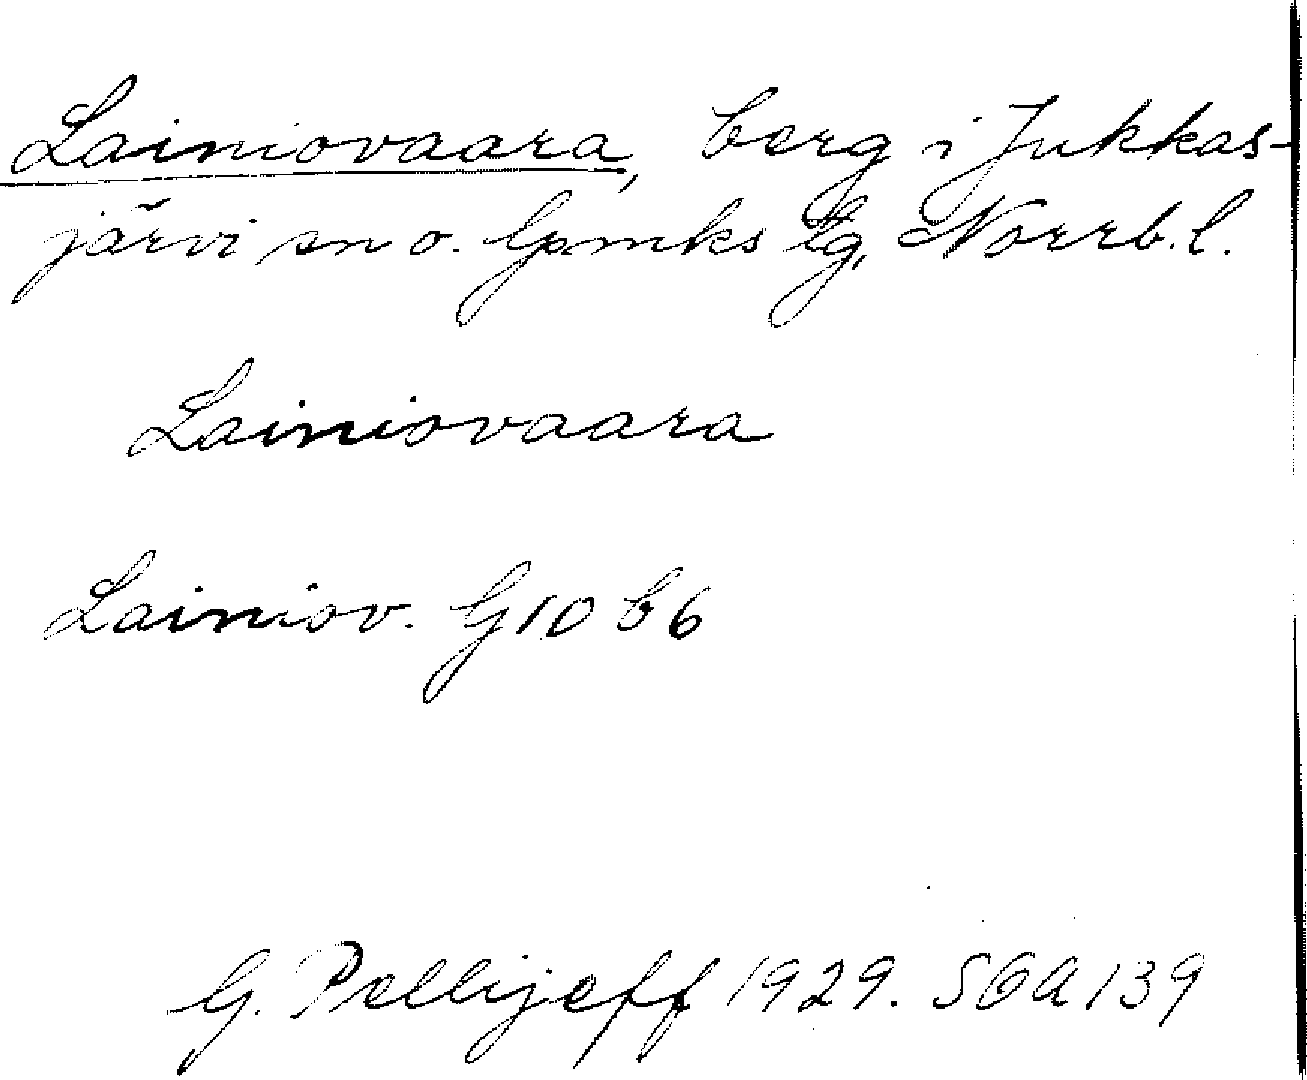 Lainiovaara, berg i Jukkas-
järvi sn o. Gpmks tg, Norrb. l.
Lainiovaara
Lainiov. G10 b6
G. Pellijeff 1929. SOA139